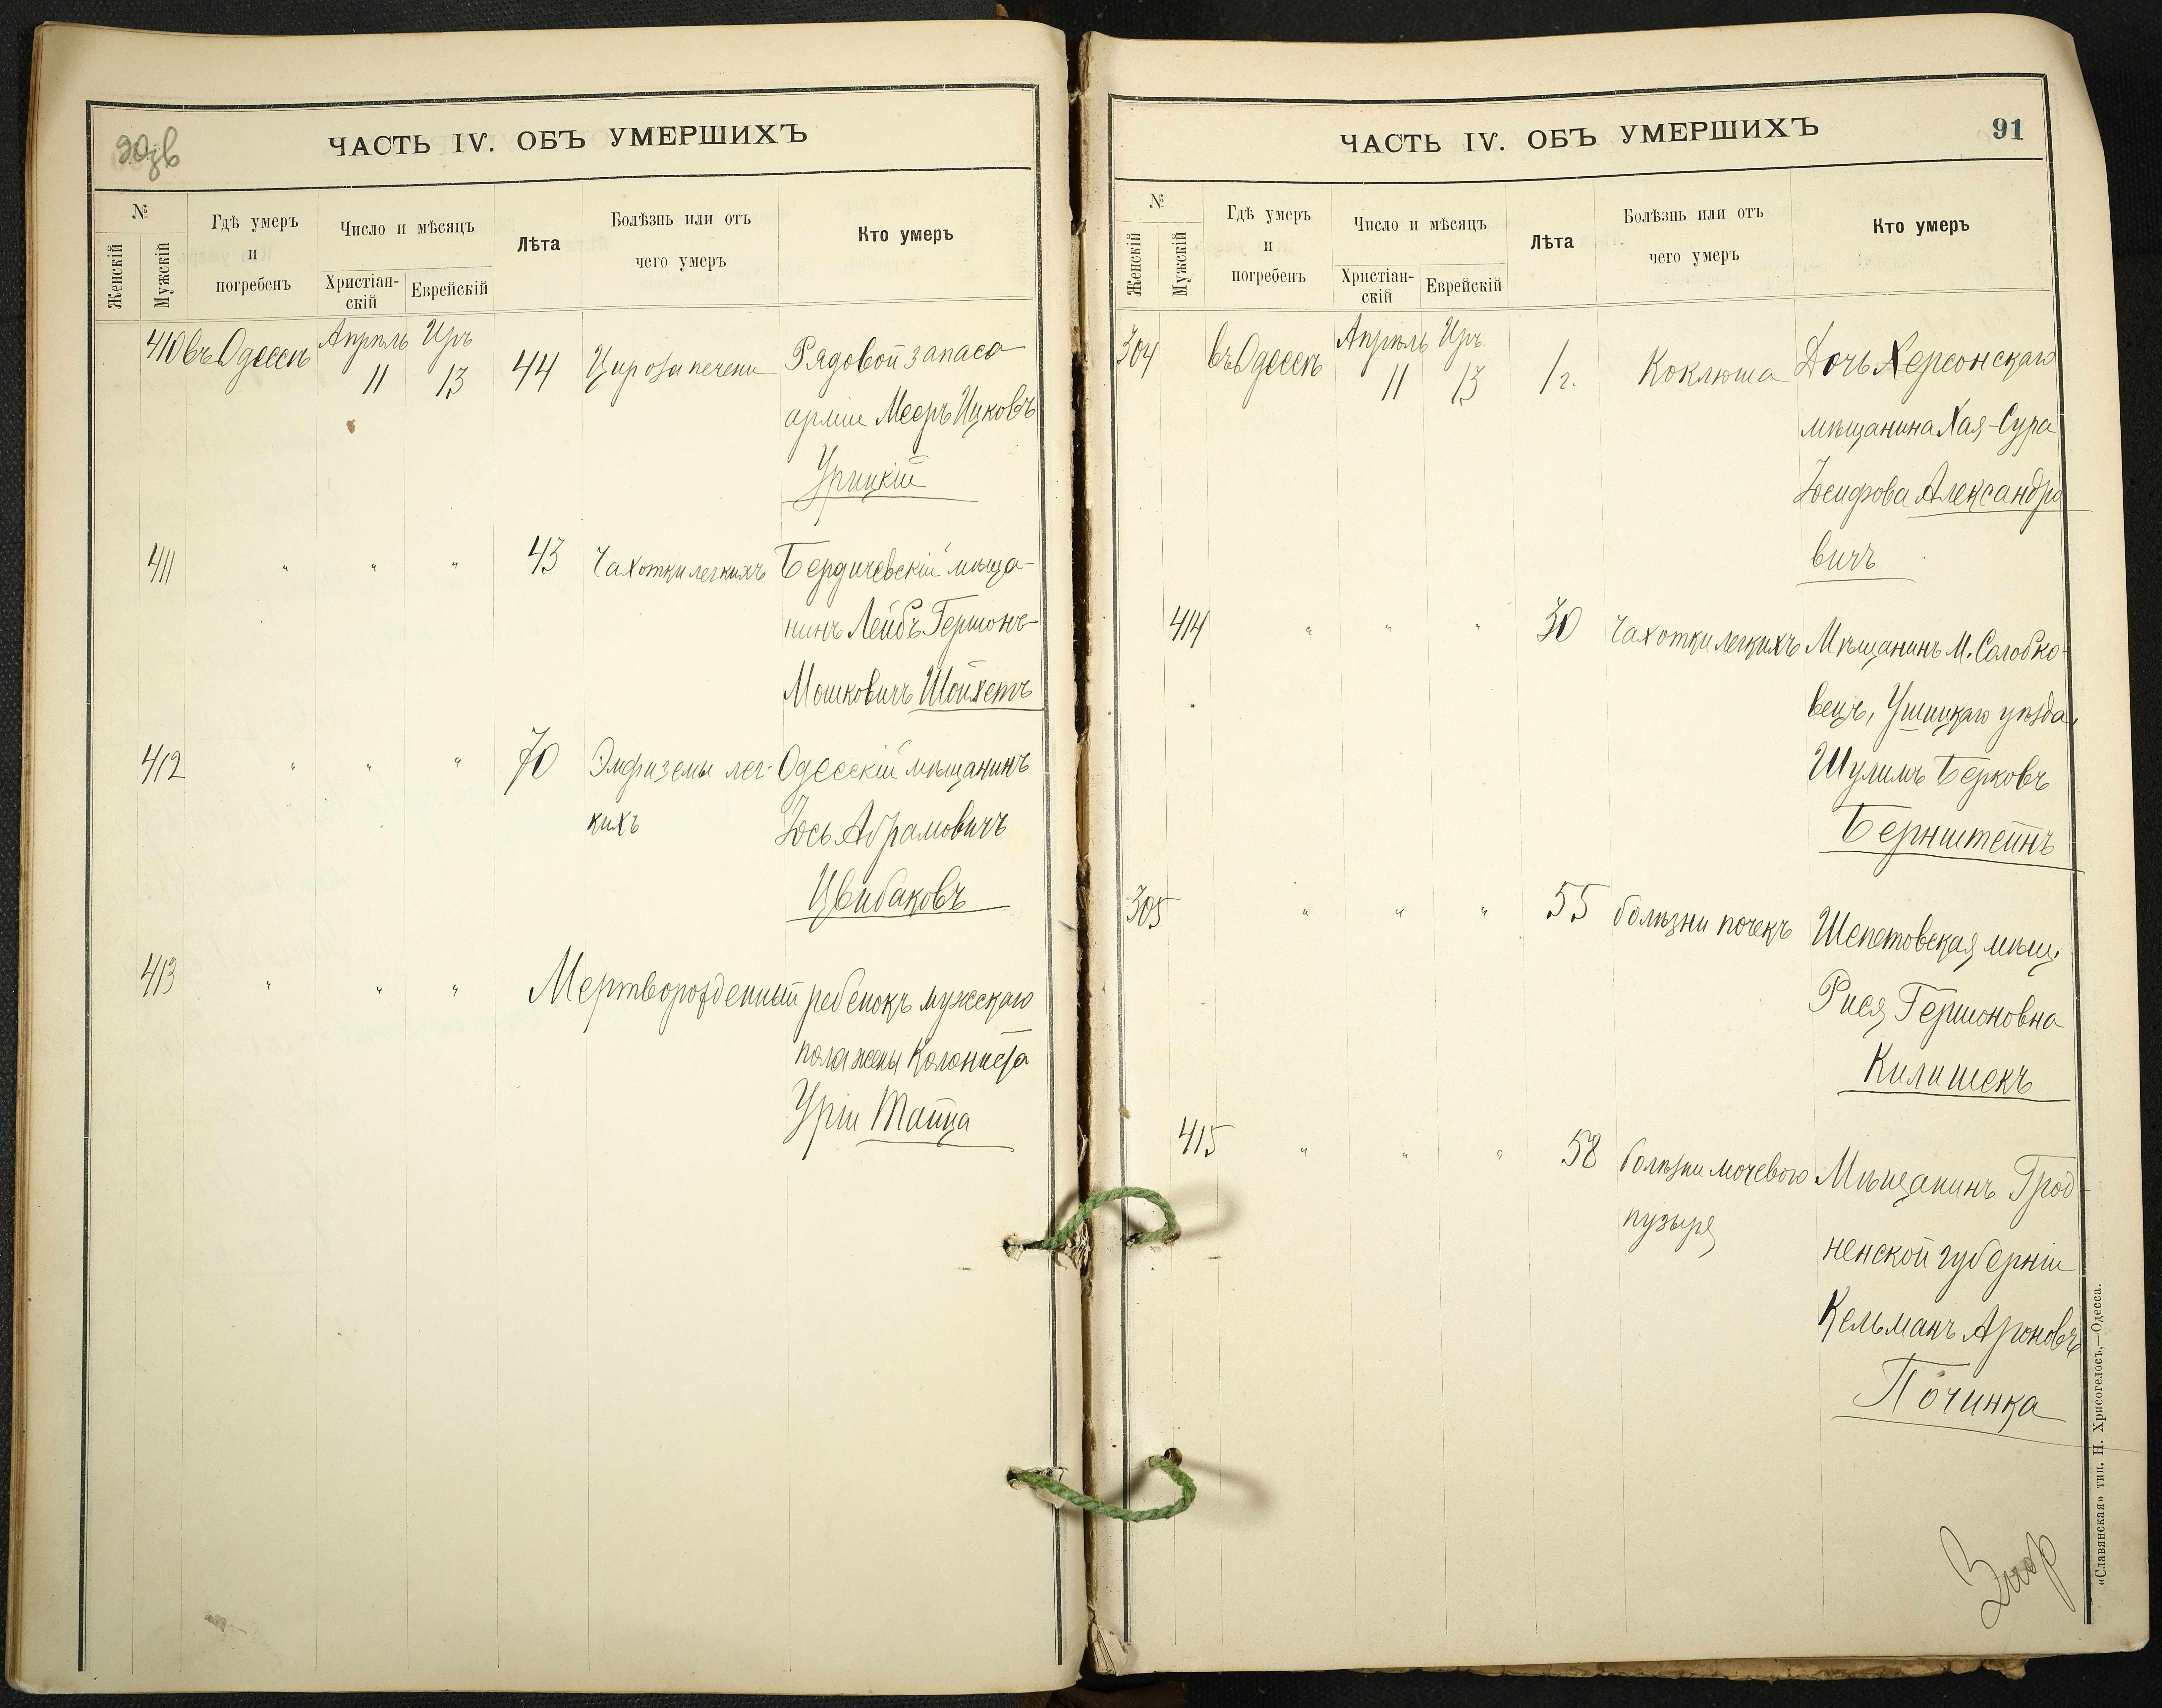 90 зв
ЧАСТЬ IV. ОБЪ УМЕРШИХЪ
№
Женскій
Мужскій
Гдѣ умеръ
и
погребенъ
Число и мѣсяцъ
Христіан-
скій
Еврейскій
Лѣта
Болѣзнь или отъ
чего умеръ
Кто умеръ
410 въ Одессѣ Апрѣль 11 Иръ 13 44 Цироза печени Рядовой запаса
арміи Мееръ Ицковъ
Урицкій
411 " " " 43 Чахотки легкихъ Бердичевскій мѣща-
нинъ Лейбъ-Гершонъ-
Мошковичъ Шойхетъ
412 " " " 70 Эмфиземы лег- Одесскій мѣщанинъ
кихъ Іось Абрамовичъ
Цвибаковъ
413 " " " Мертворожденный ребенокъ мужскаго
пола жены колониста
Уріи Тайца
ЧАСТЬ IV. ОБЪ УМЕРШИХЪ
91
№
Женскій
Мужскій
Гдѣ умеръ
и
погребенъ
Число и мѣсяцъ
Христіан-
скій
Еврейскій
Лѣта
Болѣзнь или отъ
чего умеръ
Кто умеръ
304 въ Одессѣ Апрѣль 11 Иръ 13 1 г. Коклюша Дочь Херсонскаго
мѣщанина Хая-Сура
Іосифова Александро
вичъ
414 " " " 30 Чахотки легкихъ Мѣщанинъ М. Солобко-
вецъ, Ушицкаго уѣзда,
Шулимъ Берковъ
Бернштейнъ
305 " " " 55 болѣзни почекъ Шепетовская мѣщ.
Рися Гершоновна
Килишекъ
415 " " " 58 болѣзни мочевого Мѣщанинъ Грод-
пузыря ненской губерніи
Кельманъ Ароновъ
Починка
«Славянская» тип. Н. Хрисогелосъ,—Одесса.